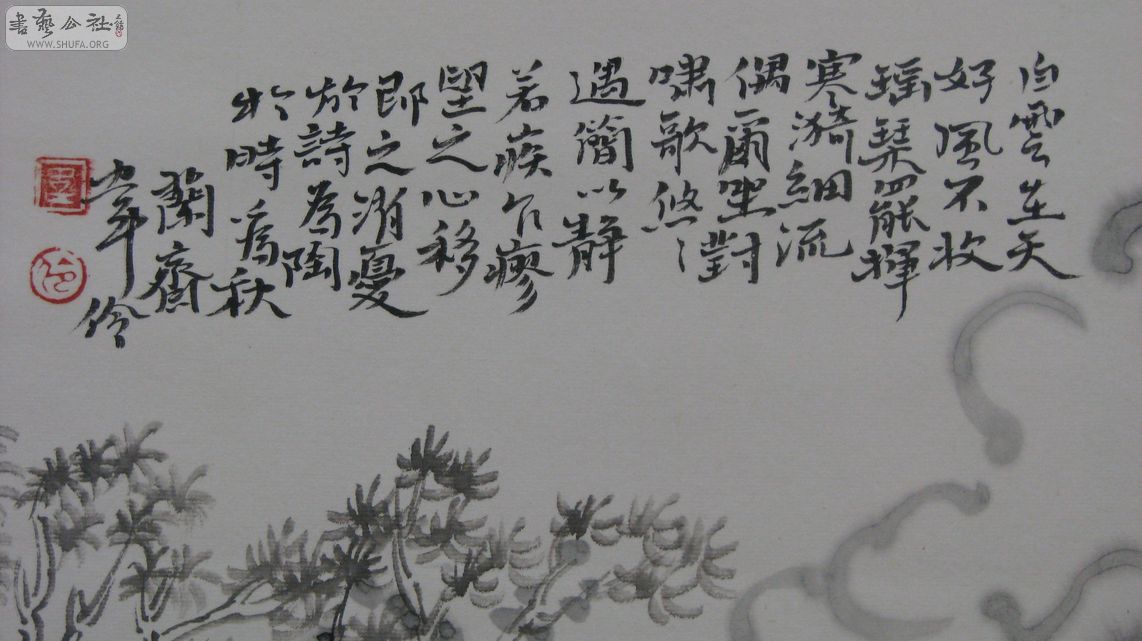 書藝公社
WWW.SHUFA.ORG
白雲在天
好風不收
瑶琹罷揮
寒漪細流
偶爾坐對
啸歌悠〻
遇簡以静
若疾乍瘳
望之心移
即之消憂
於詩為陶
於時為秋
蘭齋